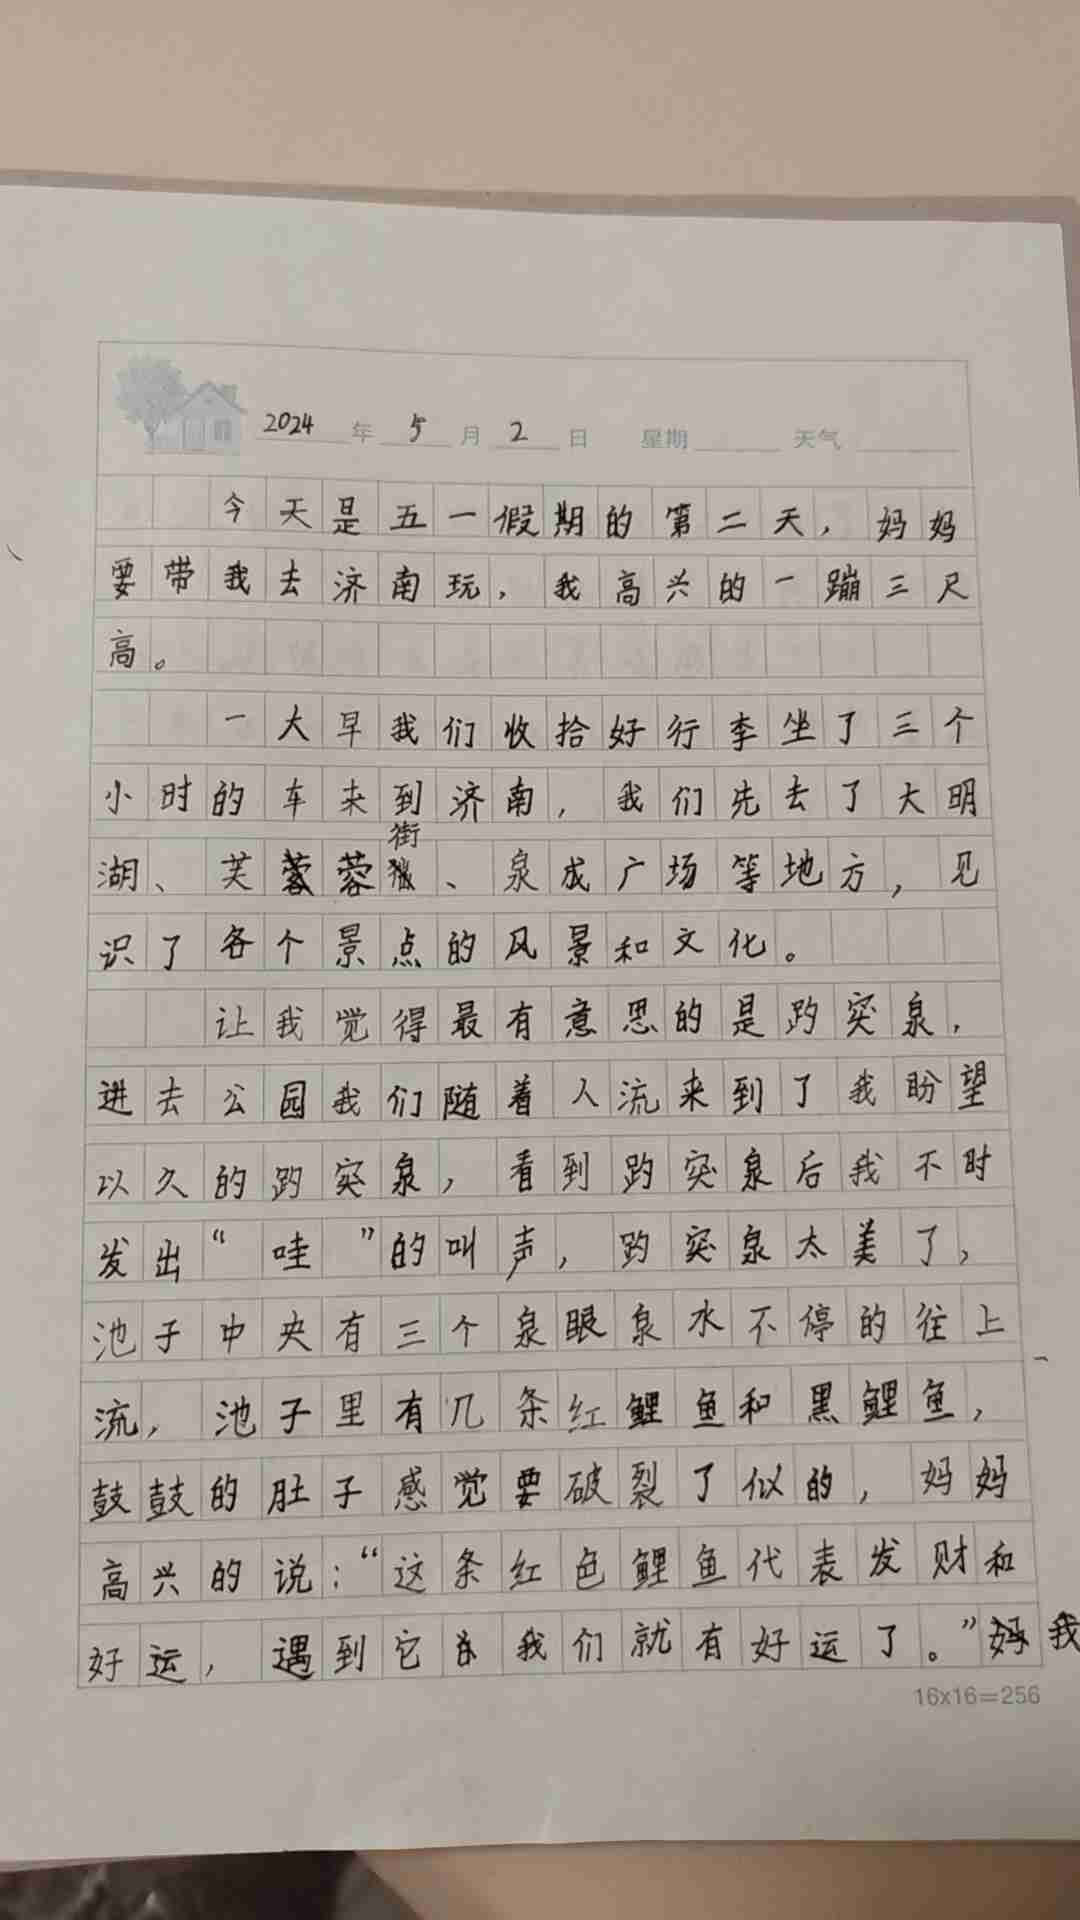 2024年5月2日 星期 天气
今天是五一假期的第二天，妈妈
要带我去济南玩，我高兴的一蹦三尺
高。
一大早我们收拾好行李坐了三个
小时的车来到济南，我们先去了大明
湖、芙蓉街、泉成广场等地方，见
识了各个景点的风景和文化。
让我觉得最有意思的是趵突泉，
进去公园我们随着人流来到了我盼望
以久的趵突泉，看到趵突泉后我不时
发出“哇”的叫声，趵突泉太美了，
池子中央有三个泉眼泉水不停的往上
流，池子里有几条红鲤鱼和黑鲤鱼，
鼓鼓的肚子感觉要破裂了似的，妈妈
高兴的说：“这条红色鲤鱼代表发财和
好运，遇到它我们就有好运了。”我
16x16=256